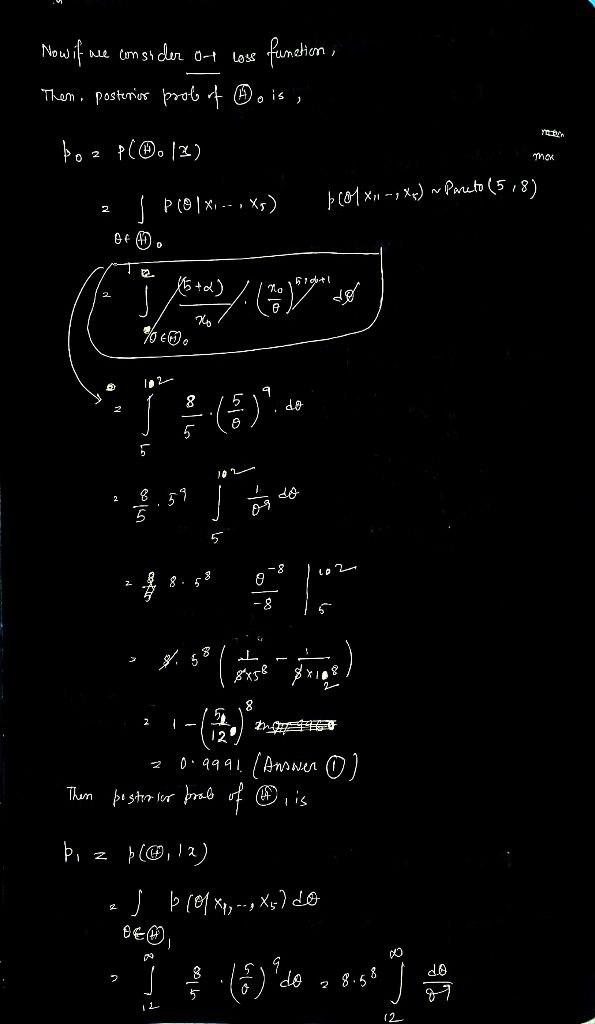 Now if we consider 0-1 loss function,
Then, posterior prob of Ⓗ₀ is,
p₀ = P(Ⓗ₀ | x)
= ∫_{θ∈Ⓗ₀} P(θ | x₁ ..., x₅)    p(θ | x₁, -, x₅) ~ Pareto(5, 8)
max
= ∫_{θ∈Ⓗ₀} (5+α)/x₀ · (x₀/θ)^{5+α+1} dθ
= ∫₅^{12} 8/5 · (5/θ)⁹ · dθ
= 8/5 · 5⁹ ∫₅^{12} 1/θ⁹ dθ
= 8 · 5⁸ θ⁻⁸/-8 |₅^{12}
= 8 · 5⁸ (1/(8×5⁸) - 1/(8×12⁸))
= 1 - (5/12)⁸
= 0.9991 (Answer ①)
Then posterior prob of Ⓗ₁ is
p₁ = p(Ⓗ₁ | x)
= ∫_{θ∈Ⓗ₁} p(θ | x₁, --, x₅) dθ
= ∫₁₂^∞ 8/5 · (5/θ)⁹ dθ = 8·5⁸ ∫₁₂^∞ dθ/θ⁹